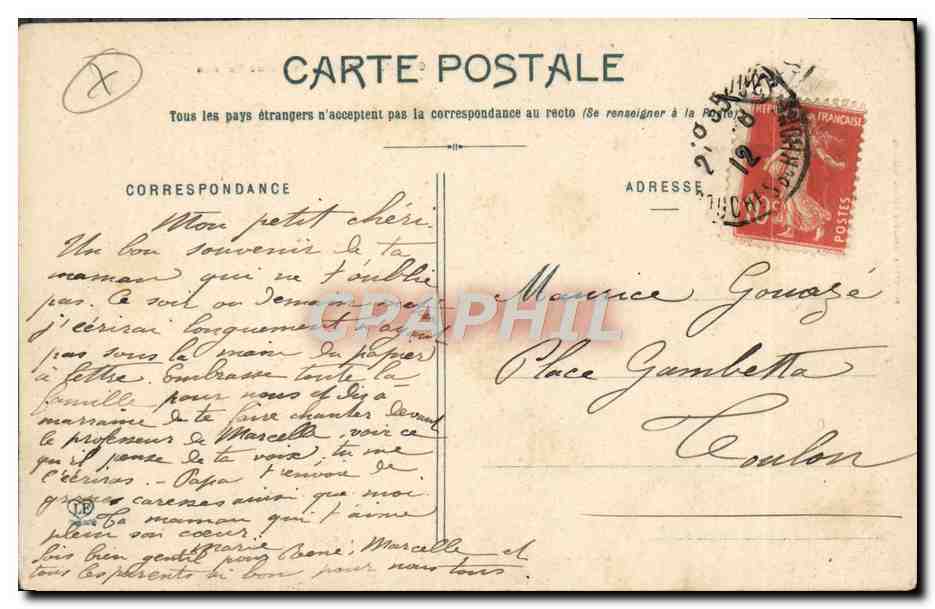 CARTE POSTALE
Tous les pays étrangers n'acceptent pas la correspondance au recto (Se renseigner à la Poste)
CORRESPONDANCE
Mon petit chéri.
Un bon souvenir de ta
maman qui ne t'oublie
pas. Ce soir ou demain
j'écrirai longuement n'ayant
pas sous la main du papier
à lettre. Embrasse toute la
famille pour nous et dis à
marraine de te faire chanter devant
le professeur de Marcelle, voir ce
qu'il pense de ta voix, tu me
l'écriras. - Papa t'envoie de
grosses caresses ainsi que moi.
Ta maman qui t'aime
plein son cœur.
Marie
Sois bien gentil pour René, Marcelle et
tous les parents si bon pour nous tous.
LE
ADRESSE
Maurice Gouazé
Place Gambetta
Toulon
RÉPUBLIQUE FRANÇAISE
POSTES
10c
12
BOUCHES DU RHONE
CPAPHIL
X